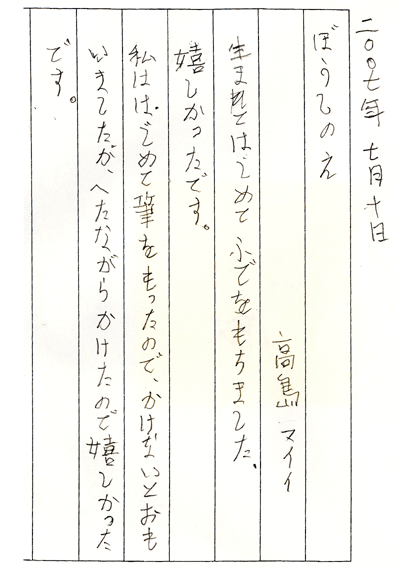 二〇〇七年 七月十日
ぼうしのえ
高島 マイイ
生まれてはじめて ふでをもちました、
嬉しかったです。
私ははじめて筆をもったので、かけないとおも
いましたが、へたながらかけたので嬉しかった
です。